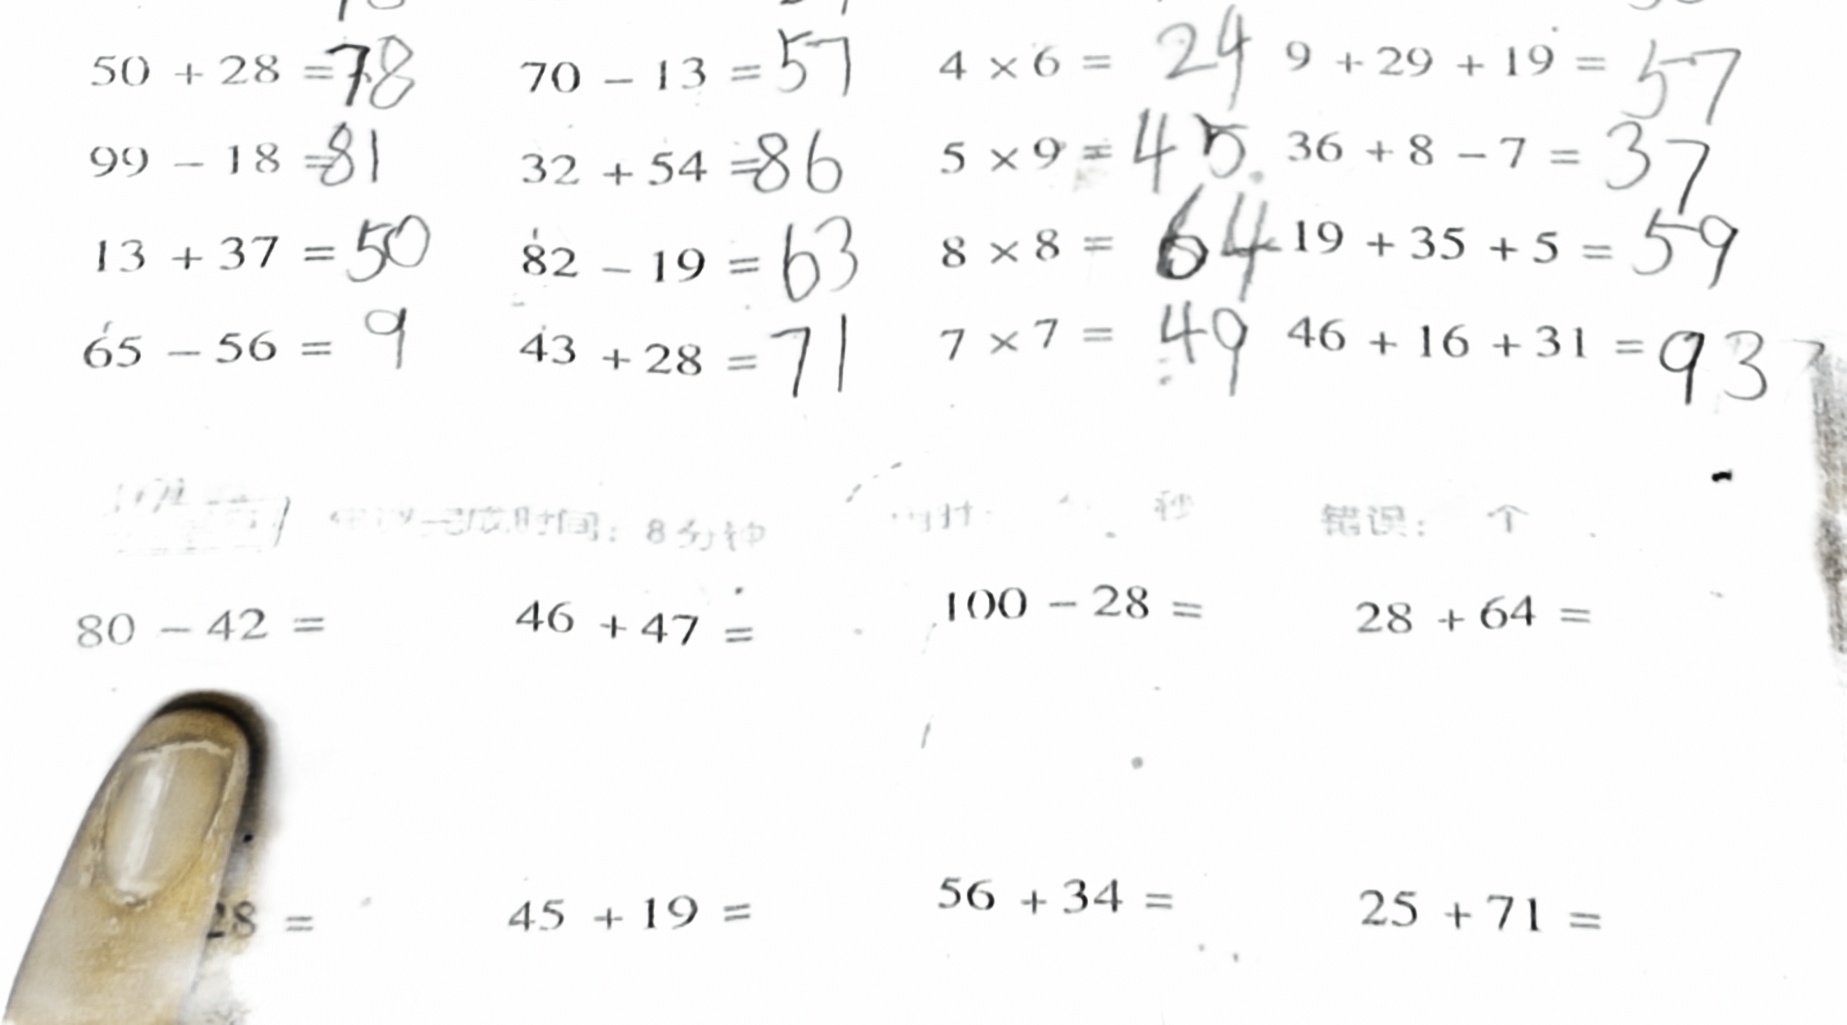 50 + 28 = 78 70 - 13 = 57 4 × 6 = 24 9 + 29 + 19 = 57
99 - 18 = 81 32 + 54 = 86 5 × 9 = 45 36 + 8 - 7 = 37
13 + 37 = 50 82 - 19 = 63 8 × 8 = 64 19 + 35 + 5 = 59
65 - 56 = 9 43 + 28 = 71 7 × 7 = 49 46 + 16 + 31 = 93
完成时间: 8分钟 秒 错误: 个
80 - 42 = 46 + 47 = 100 - 28 = 28 + 64 =
28 = 45 + 19 = 56 + 34 = 25 + 71 =